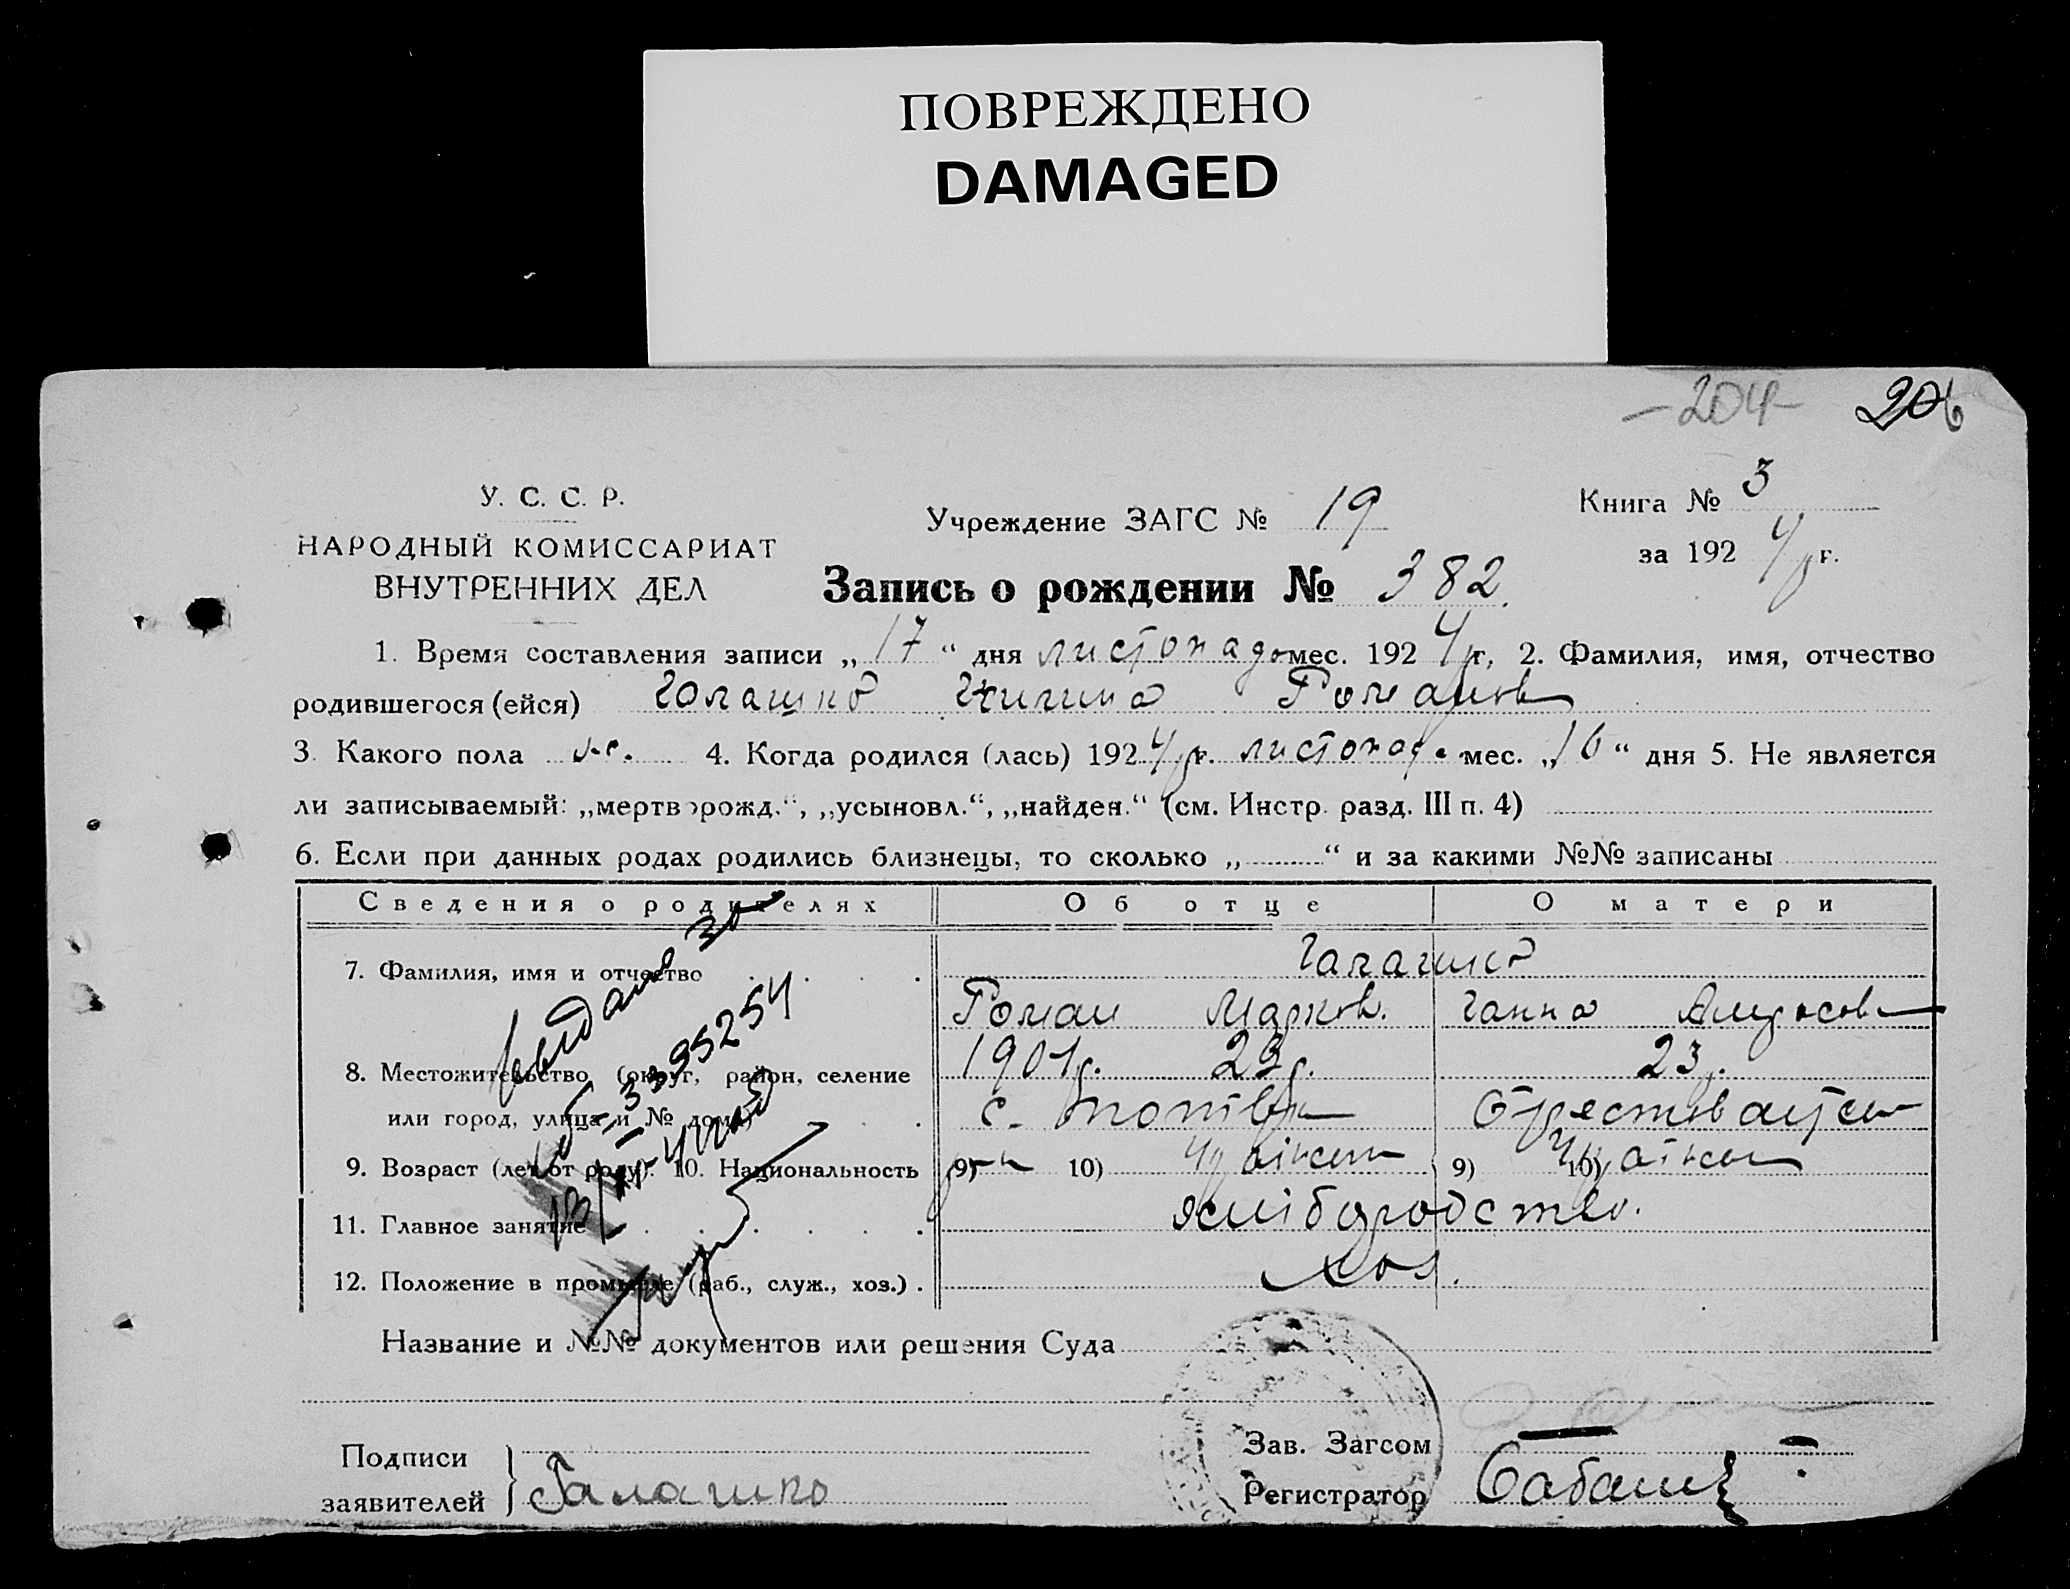 ПОВРЕЖДЕНО
DAMAGED
-204- 206
У. С. С. Р.
НАРОДНЫЙ КОМИССАРИАТ
ВНУТРЕННИХ ДЕЛ
Учреждение ЗАГС № 19
Книга № 3
за 192 4 г.
Запись о рождении № 382
1. Время составления записи „ 17 “ дня листопада мес. 192 4 г, 2. Фамилия, имя, отчество
родившегося (ейся) Романов
3. Какого пола 4. Когда родился (лась) 192 4 г. листопад. мес. „ 16 “ дня 5. Не является
ли записываемый: „мертворожд.“, „усыновл.“, „найден.“ (см. Инстр. разд. III п. 4)
6. Если при данных родах родились близнецы, то сколько „ “ и за какими №№ записаны
Сведения о родителях Об отце О матери
7. Фамилия, имя и отчество Галашко
Роман Марков. Ганна
8. Местожительство (округ, район, селение 1901 р. 23 р. 23 р.
или город, улица и № дома) с.
9. Возраст (лет от роду). 10. Национальность 9) 10) 9) 10)
11. Главное занятие хліборобство.
12. Положение в промысле (раб., служ., хоз.) . хоз.
выдано
3395254
Название и №№ документов или решения Суда
Подписи
заявителей Галашко
Зав. Загсом
Регистратор